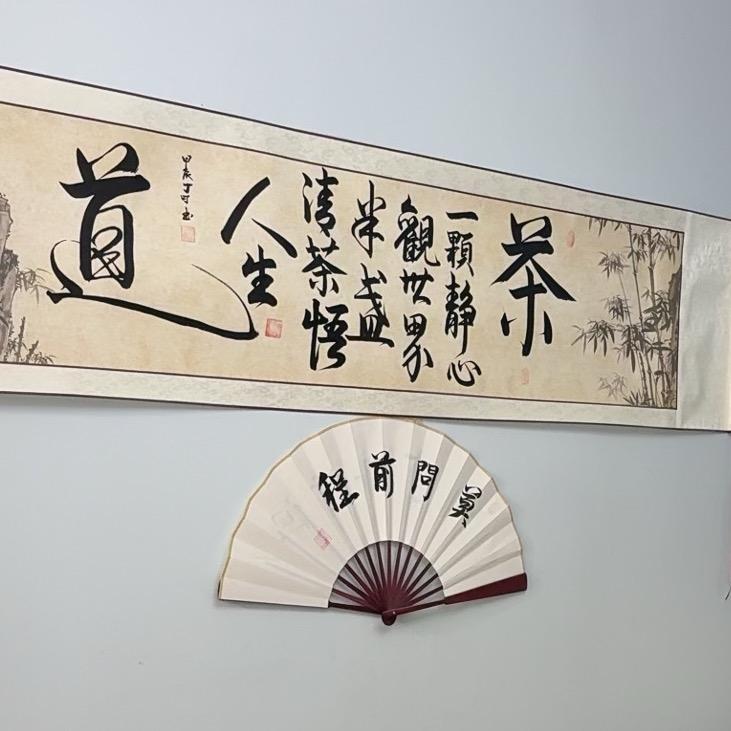 茶
一顆靜心
觀世界
半盞
清茶悟
人生
道
甲辰丁可书
莫問前程